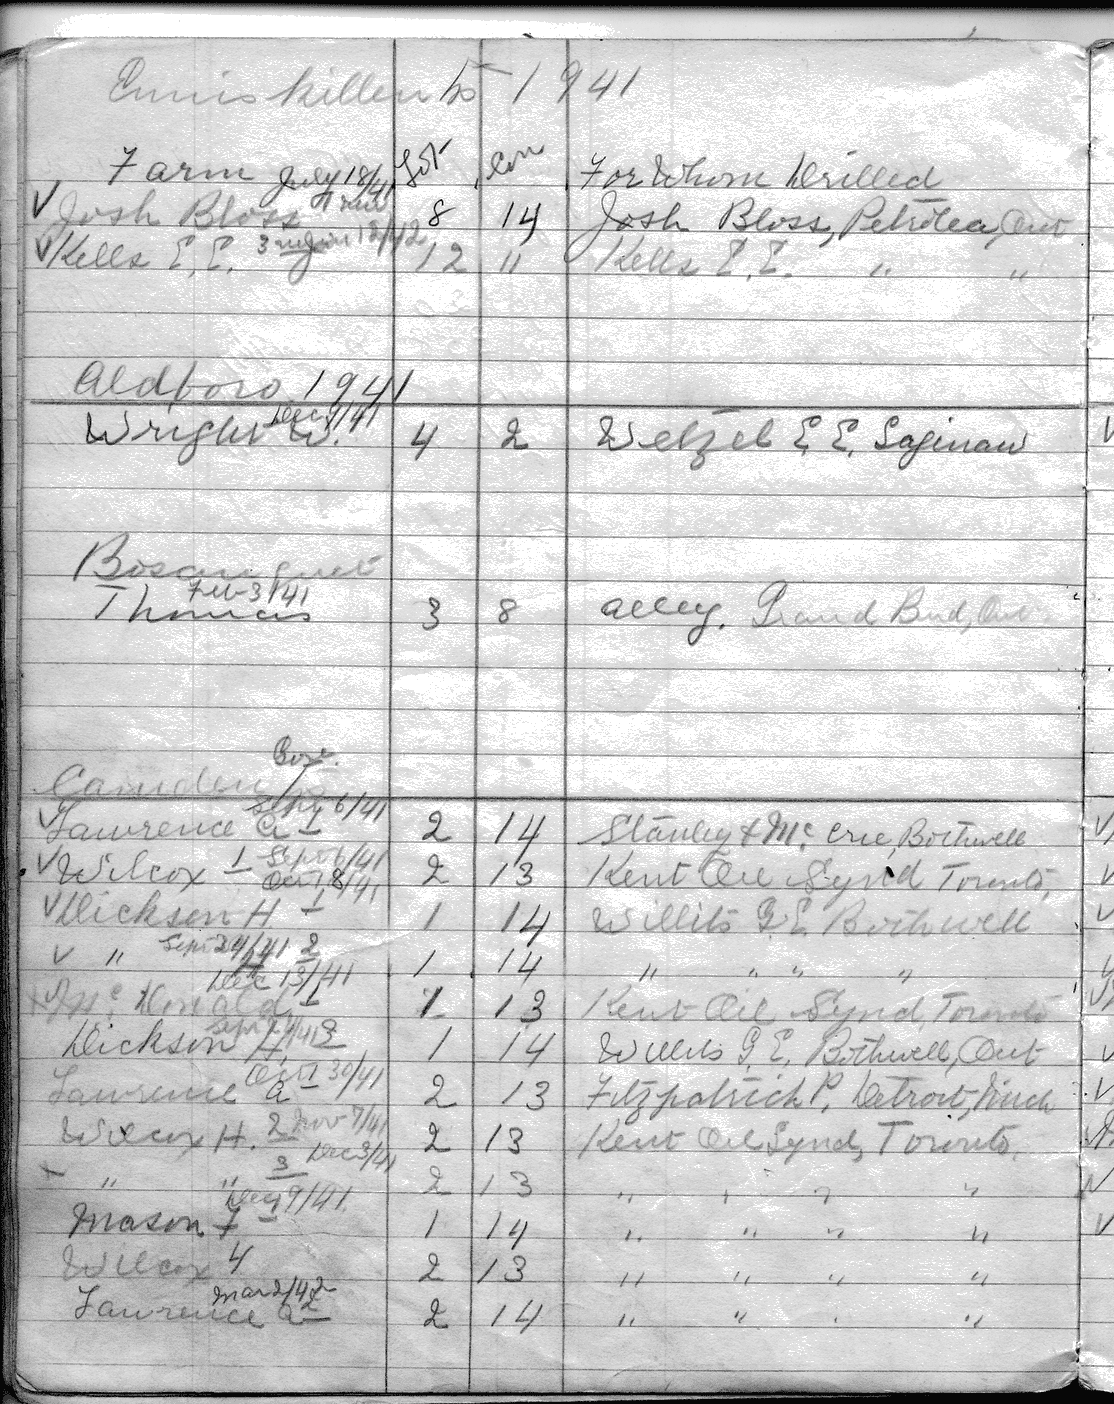 Enniskillen Tp 1941
Farm Lot Con For Whom Drilled
July 18/41
✓ Josh Bloss 8 14 Josh Bloss, Petrolea, Ont
✓ Kells E.E. 3 Jan 12/42 12 " Kells E.E. " "
Aldboro 1941
Dec 9/41
Wright W. 4 2 Wetzel E E. Saginaw
Bosanquet
Feb 3/41
Thomas 3 8 Alley. Grand Bend, Ont
Camden
Sept 6/41
✓ Lawrence A 1 2 14 Stanley & Mc. Bothwell
✓ Wilcox 1 Sept 6/41 2 13 Kent Oil Synd Toronto,
Oct 18/41
✓ Dickson H. 1 1 14 Willits G E. Bothwell
✓ " Sept 24/41 2 1 14 " " " "
Dec 13/41
Mc Donald 1 1 13 Kent Oil Synd, Toronto
Dickson H. 3 1 14 Willits G. E. Bothwell, Ont
Oct 30/41
Lawrence A 1 2 13 Fitzpatrick P. Detroit, Mich
Wilcox H. 2 Nov 7/41 2 13 Kent Oil Synd, Toronto.
3 Dec 3/41
" " 2 13 " " " "
Dec 9/41
Mason F 1 1 14 " " " "
Wilcox 4 2 13 " " " "
Mar 2/42
Lawrence A 2 2 14 " " " "